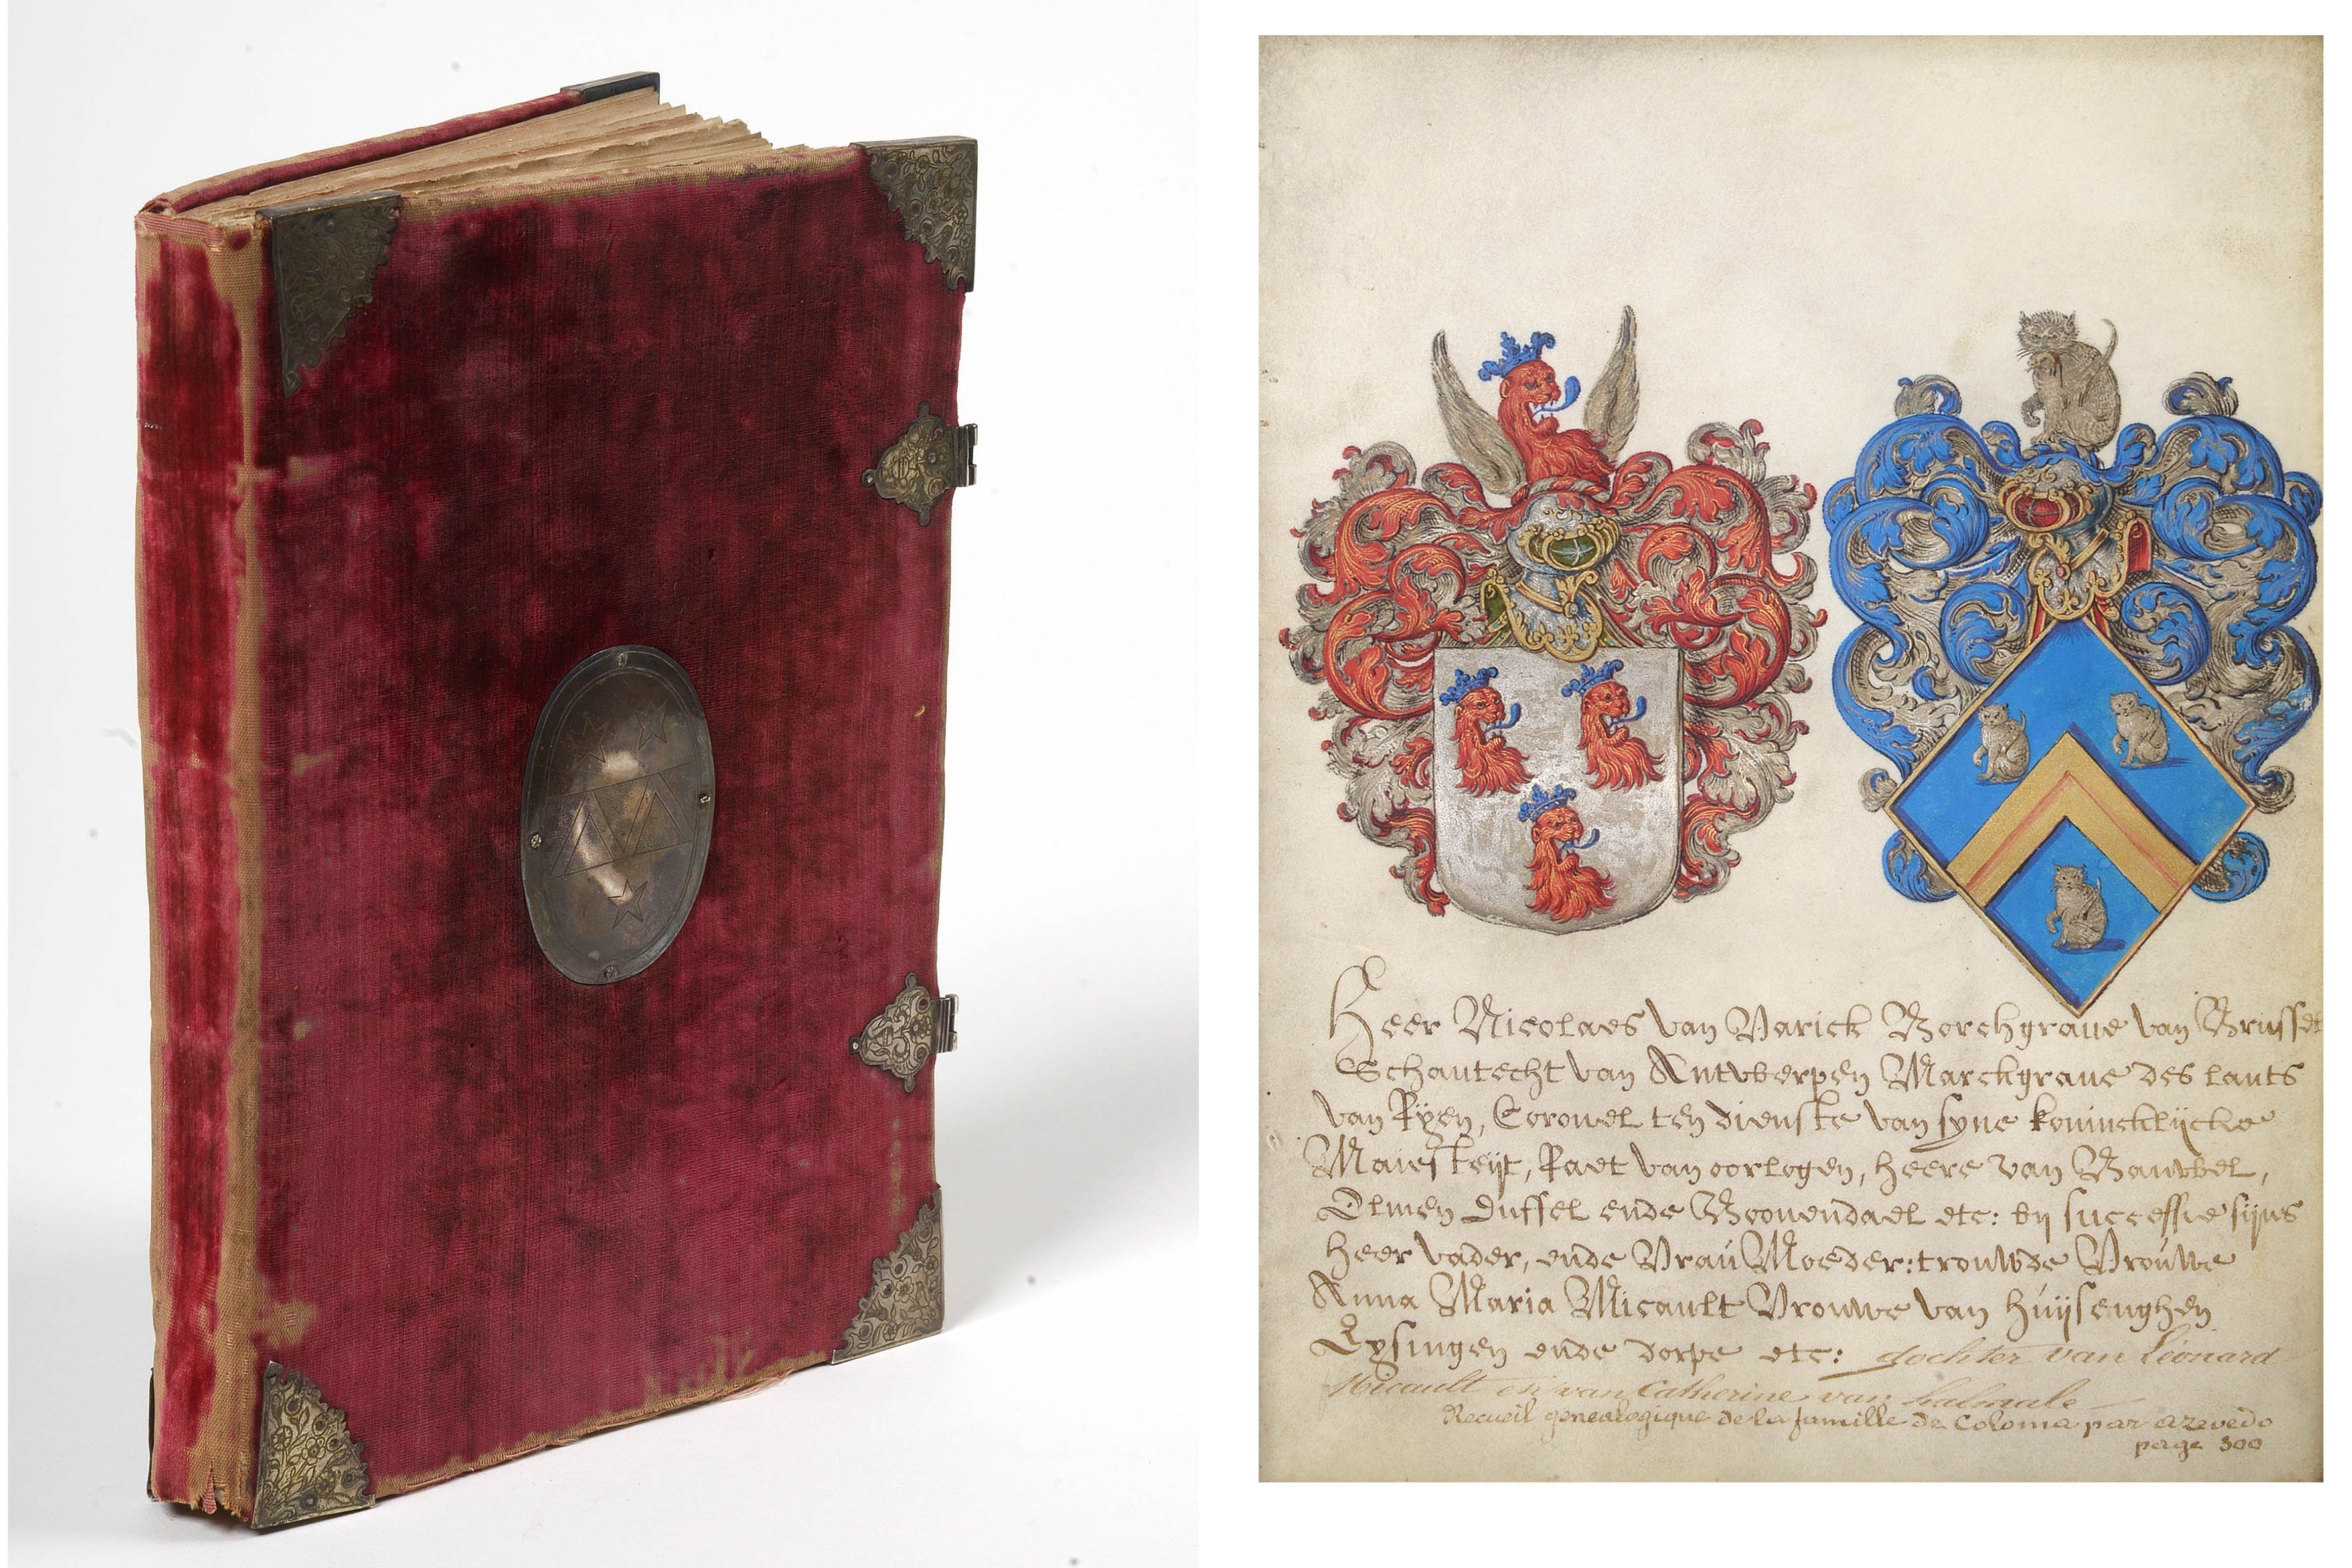 Heer Nicolaes van Varick Borchgraue van Brussel
Schautecht van Antwerpen Marckgraue des lants
van Rÿen, Coronel ten dienste van syne koninckⅼijcke
Maiesteÿt, Raet van oorlogen, heere van Bauwel,
Olmen Duffel ende Boonendael etc: by successie sijns
Heer vader, ende Vrau Moeder: trouwde Vrouwe
Anna Maria Micault Vrouwe van Huijsenghen
Eysingen ende dorpe etc: dochter van Léonard
Micault en van Catherine van halmale
Recueil genealogique de la famille de Coloma par azevedo
page 300